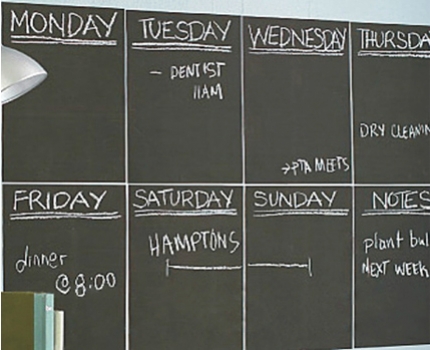 MONDAY
TUESDAY
- DENTIST
11AM
WEDNESDAY
→PTA MEETS
THURSDA
DRY CLEANIN
FRIDAY
dinner
@ 8:00
SATURDAY
HAMPTONS
SUNDAY
NOTES
plant bul
NEXT WEEK